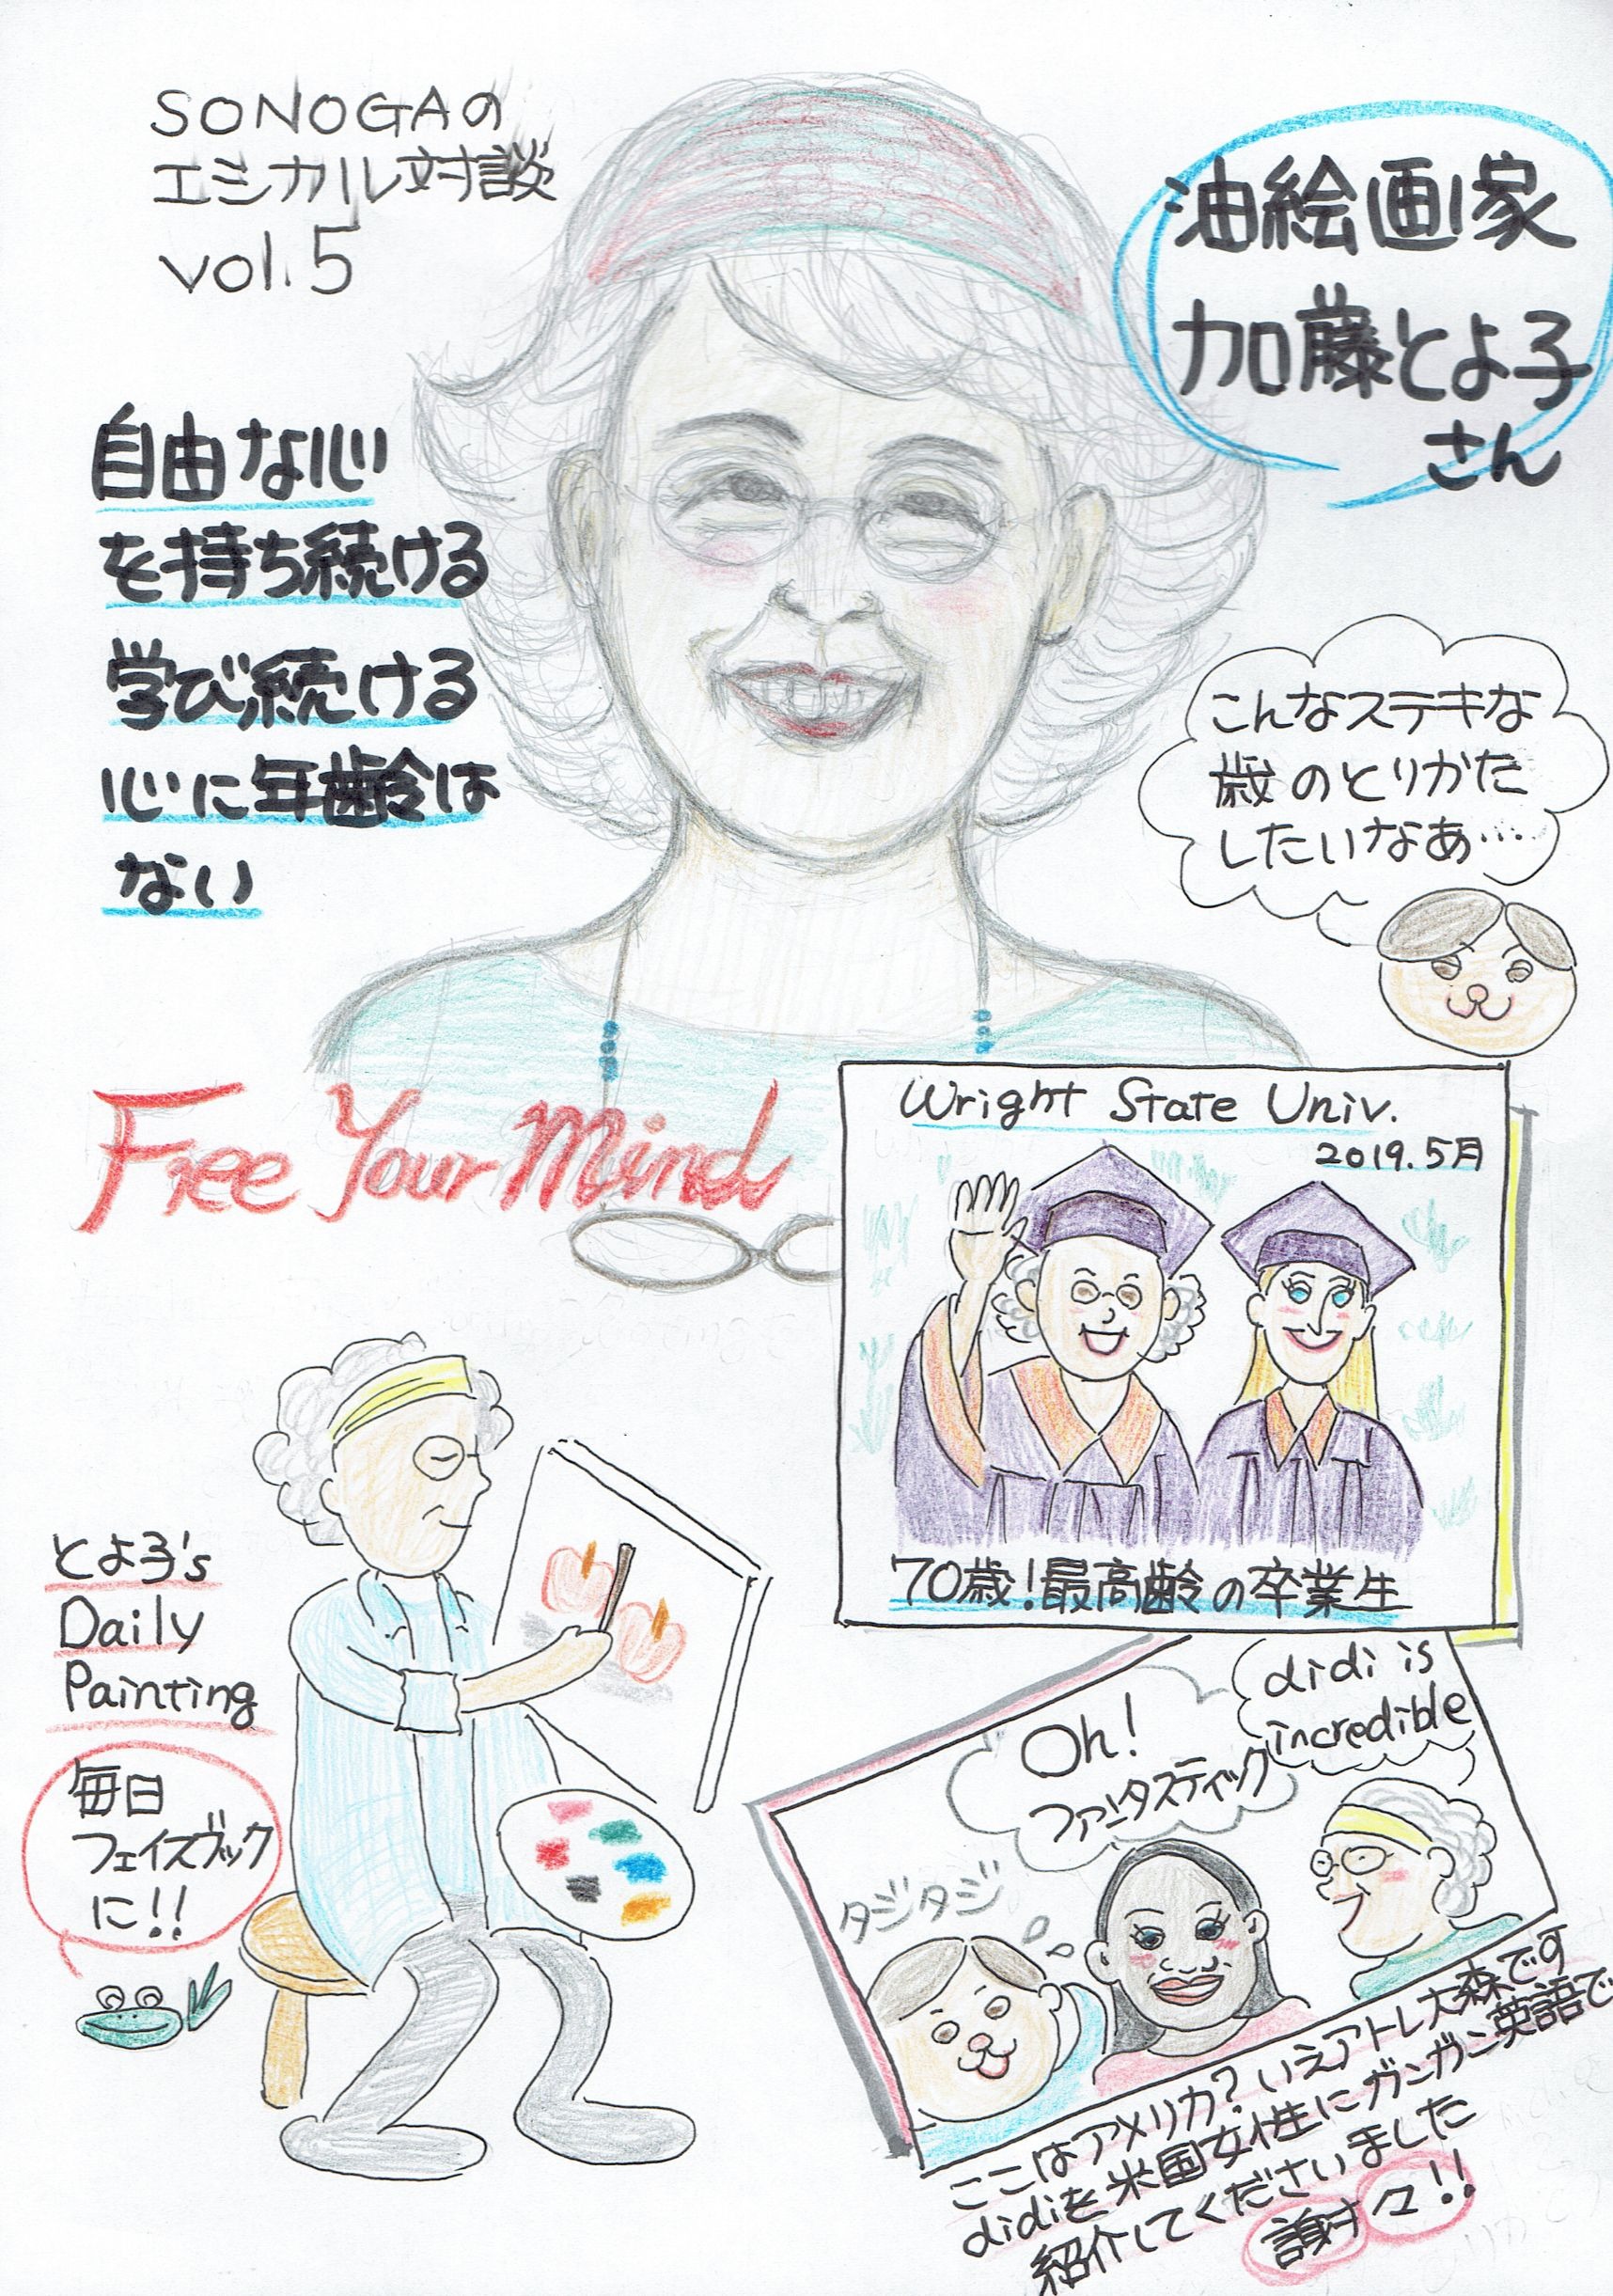 SONOGAの
エシカル対談
vol.5
油絵画家
加藤とよ子
さん
自由な心
を持ち続ける
学び続ける
心に年齢は
ない
こんなステキな
歳のとりかた
したいなあ…
Free Your Mind
Wright State Univ.
2019.5月
70歳!最高齢の卒業生
とよ子's
Daily
Painting
毎日
フェイスブック
に!!
didi is
incredible
Oh!
ファンタスティック
タジタジ
ここはアメリカ?いえアトレ大森です
didiを米国女性にガンガン英語で
紹介してくださいました
謝々!!